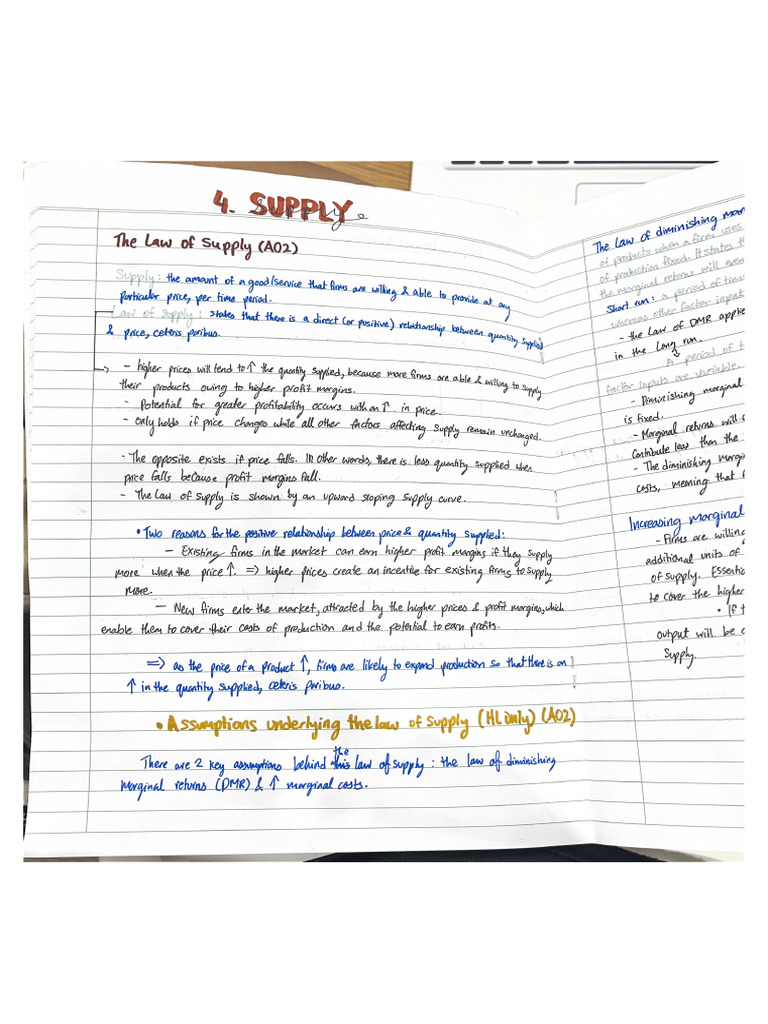 4. SUPPLY
The Law of Supply (AO2)
Supply: the amount of a good/service that firms are willing & able to provide at any
particular price, per time period.
Law of Supply: states that there is a direct (or positive) relationship between quantity supplied
& price, ceteris paribus.
- higher prices will tend to ↑ the quantity supplied, because more firms are able & willing to supply
their products owing to higher profit margins.
- Potential for greater profitability occurs with an ↑ in price.
- Only holds if price changes while all other factors affecting supply remain unchanged.
- The opposite exists if price falls. In other words, there is less quantity supplied when
price falls because profit margins fall.
- The law of supply is shown by an upward sloping supply curve.
• Two reasons for the positive relationship between price & quantity supplied:
- Existing firms in the market can earn higher profit margins if they supply
more when the price ↑. => higher prices create an incentive for existing firms to supply
more.
- New firms enter the market, attracted by the higher prices & profit margins, which
enable them to cover their costs of production and the potential to earn profits.
=> as the price of a product ↑, firms are likely to expand production so that there is an
↑ in the quantity supplied, ceteris paribus.
• Assumptions underlying the law of supply (HL only) (AO2)
the
There are 2 key assumptions behind this law of supply: the law of diminishing
marginal returns (DMR) & ↑ marginal costs.
The Law of diminishing mar
of products when a firm uses
of production fixed. It states th
the marginal returns will even
Short run: a period of time
whereas other factor input
- the law of DMR applie
in the long run.
A period of t
factor inputs are variable.
- Diminishing marginal
is fixed.
- Marginal returns will
contribute less than the
- The diminishing margin
costs, meaning that f
Increasing marginal
- Firms are willin
additional units of
of supply. Essenti
to cover the higher
• If t
output will be
supply.